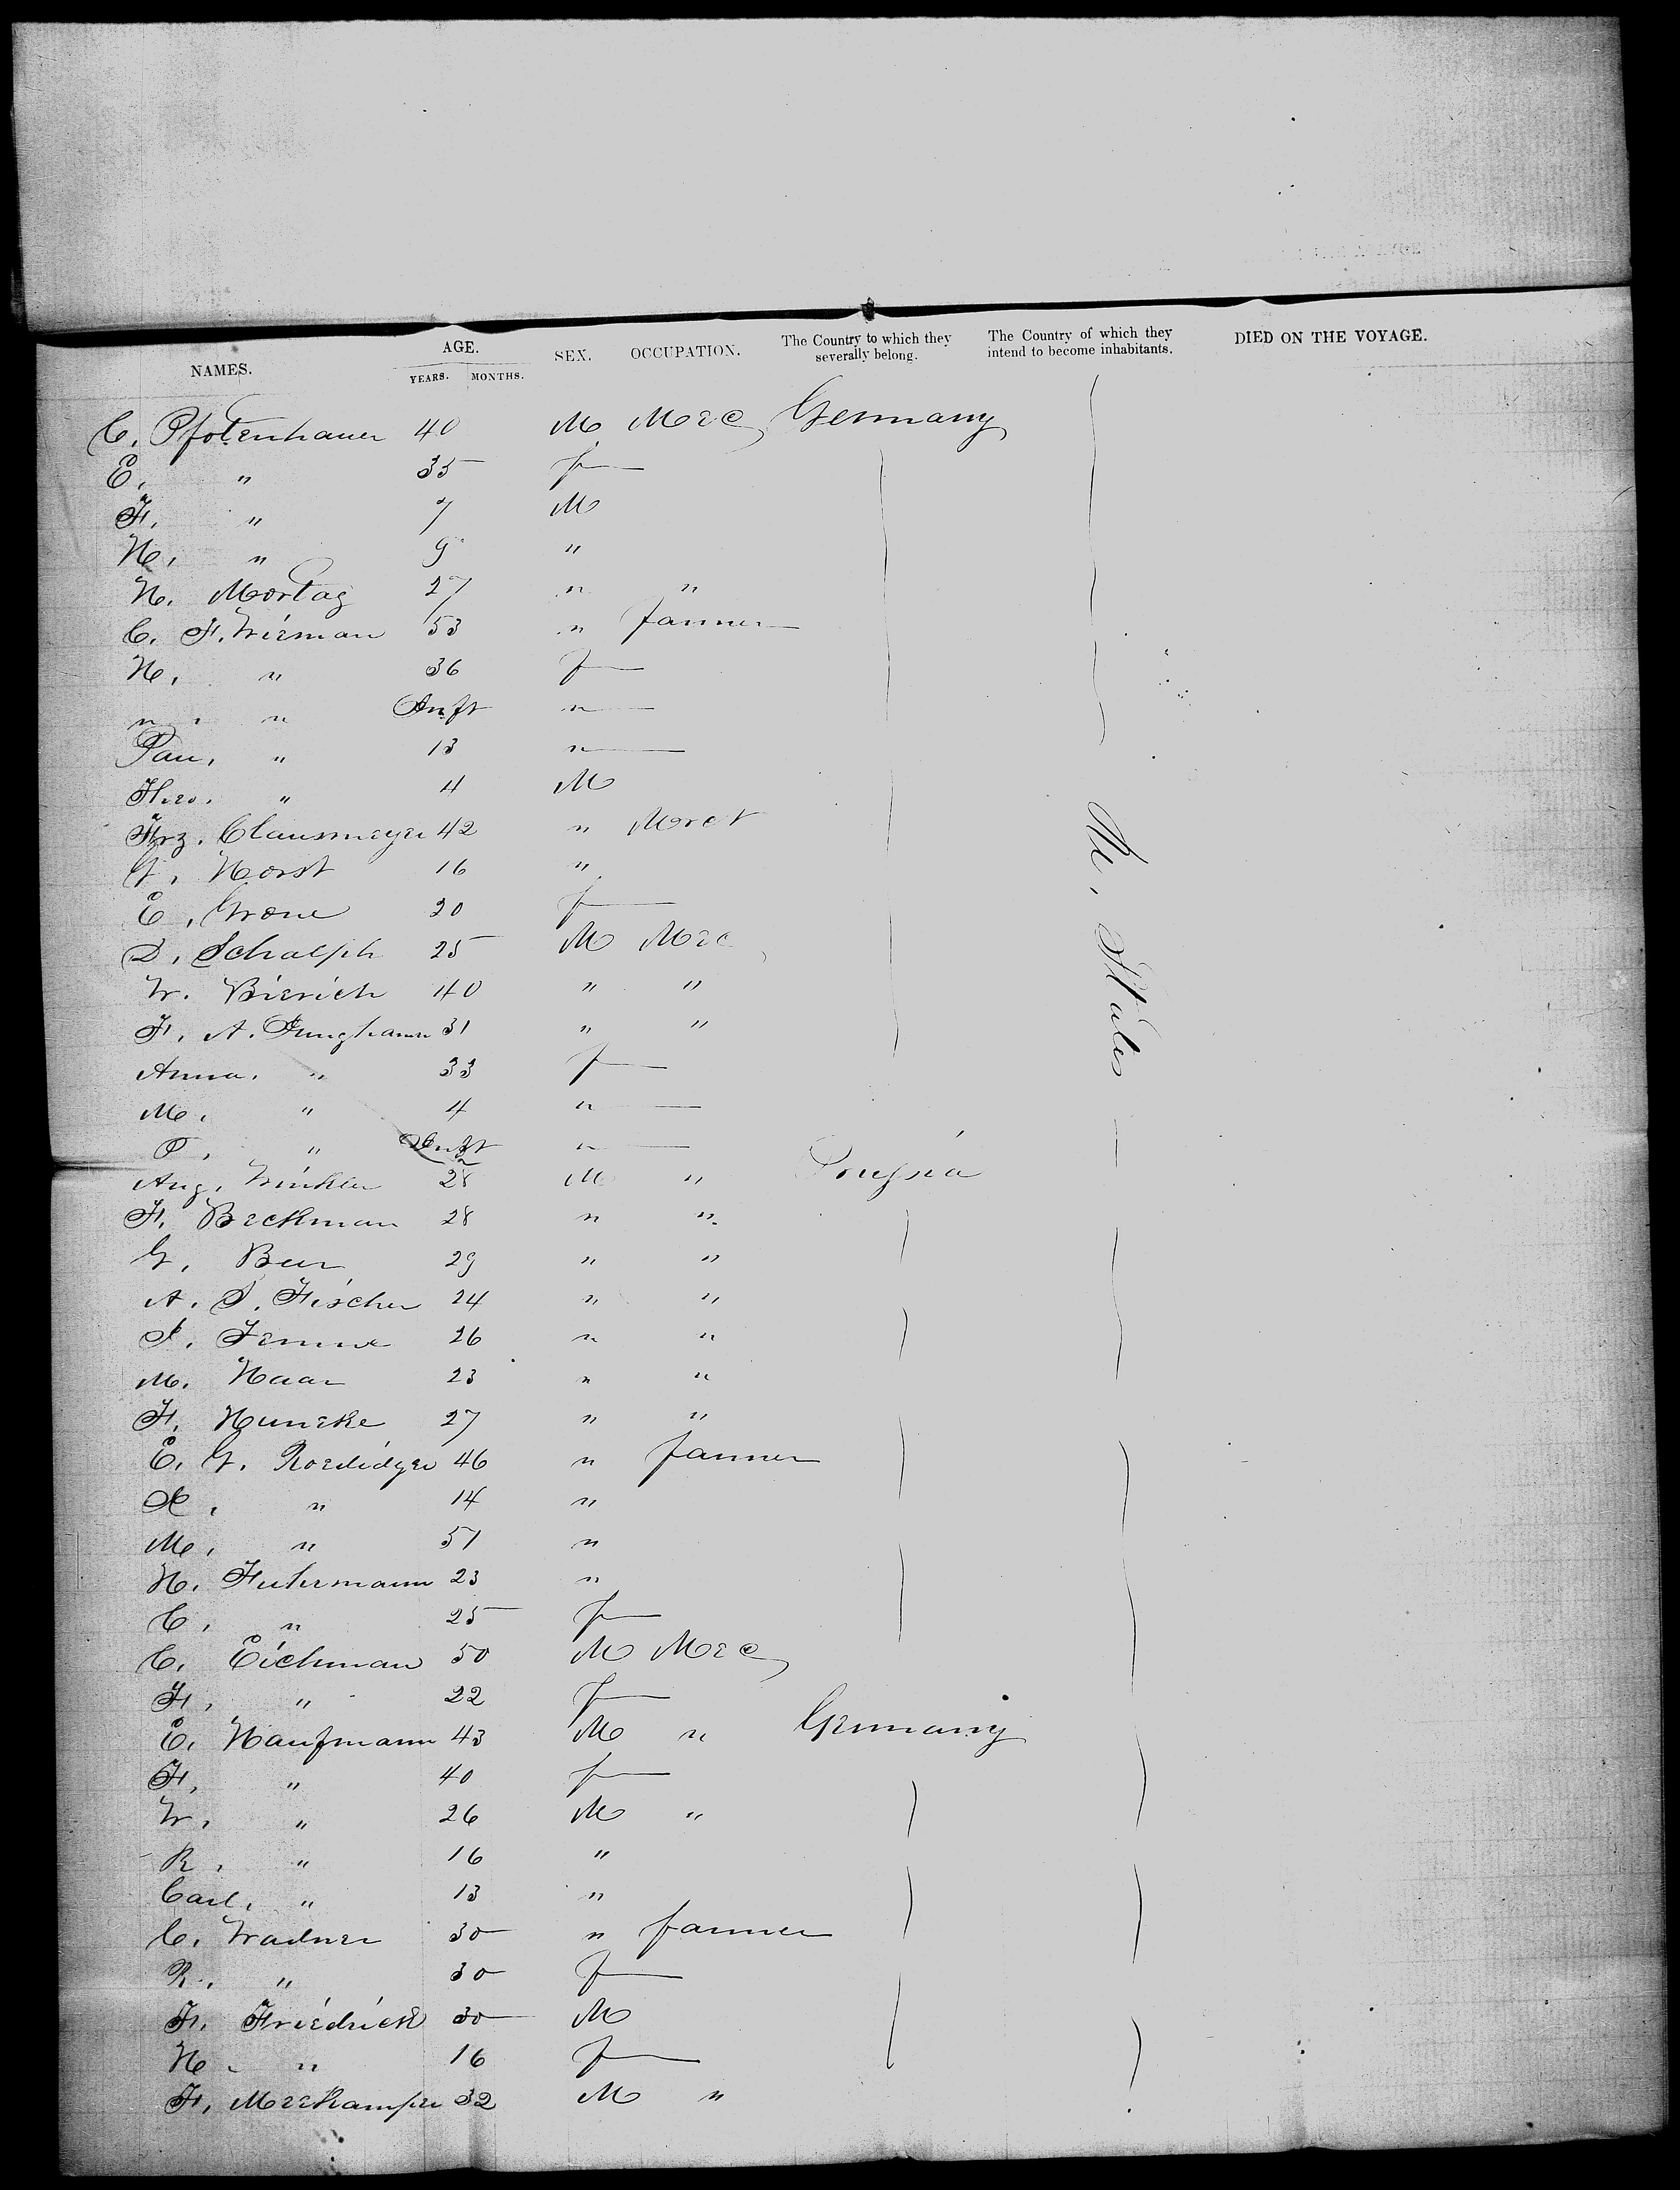 NAMES. AGE. YEARS. MONTHS. SEX. OCCUPATION. The Country to which they severally belong. The Country of which they intend to become inhabitants. DIED ON THE VOYAGE.
C. Pfotenhauer 40 M Mec Germany
E. " 35 f
F. " 7 M
H. " 9 "
H. Mortag 27 " "
C. F. Wieman 53 " farmer
H. " 36 f
" " Inft "
Pau. " 13 "
" 4 M
Frz. Clausmeyer 42 " Mrct
G. Horst 16 "
E. Grone 20 f
D. Schalph 25 M Mec
W. Bierich 40 " "
F. A. Junghann 31 " "
Anna. " 33 f
M. " 4 "
O. " Inft "
Aug. Winkler 28 M " Prussia
F. Beckman 28 " "
G. Beer 29 " "
A. S. Fischer 24 " "
26 " "
M. Haar 23 " "
F. Huneke 27 " "
E. G. Roedidger 46 " farmer
" 14 "
M. " 51 "
H. Fuhrmann 23 "
C. " 25 f
C. Eichman 50 M Mec
F. " 22 f
E. Haufmann 43 M " Germany
F. " 40 f
W. " 26 M "
R. " 16 "
Carl. " 13 "
C. Wadner 30 " farmer
R. " 30 f
F. Friedrick 30 M
H. " 16 f
F. Meekamper 32 M "
U. States